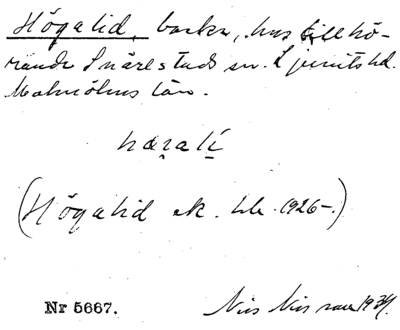 Högalid, backe, hus tillhö-
rande Snårestads sn. Ljunits hd.
Malmöhus län.
(Högalid ek. bl. 1926-.)
Nr 5667.
Nils Nilsson 1934.